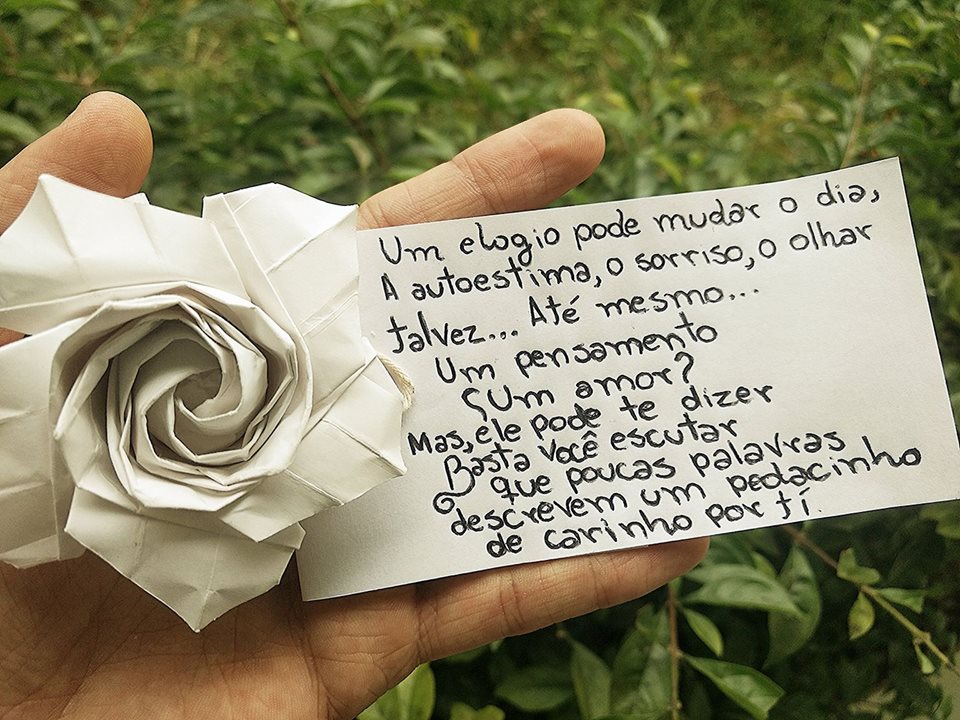 Um elogio pode mudar o dia,
A autoestima, o sorriso, o olhar
talvez... Até mesmo...
Um pensamento
¿Um amor?
Mas, ele pode te dizer
Basta você escutar
que poucas palavras
descrevem um pedacinho
de carinho por tí.